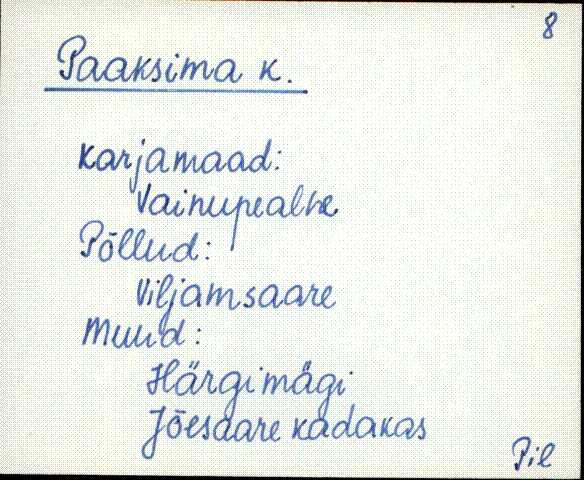 8
Paaksima k.
Karjamaad:
Vainupealne
Põllud:
Viljamsaare
Muud:
Härgimägi
Jõesaare kadakas
Pil